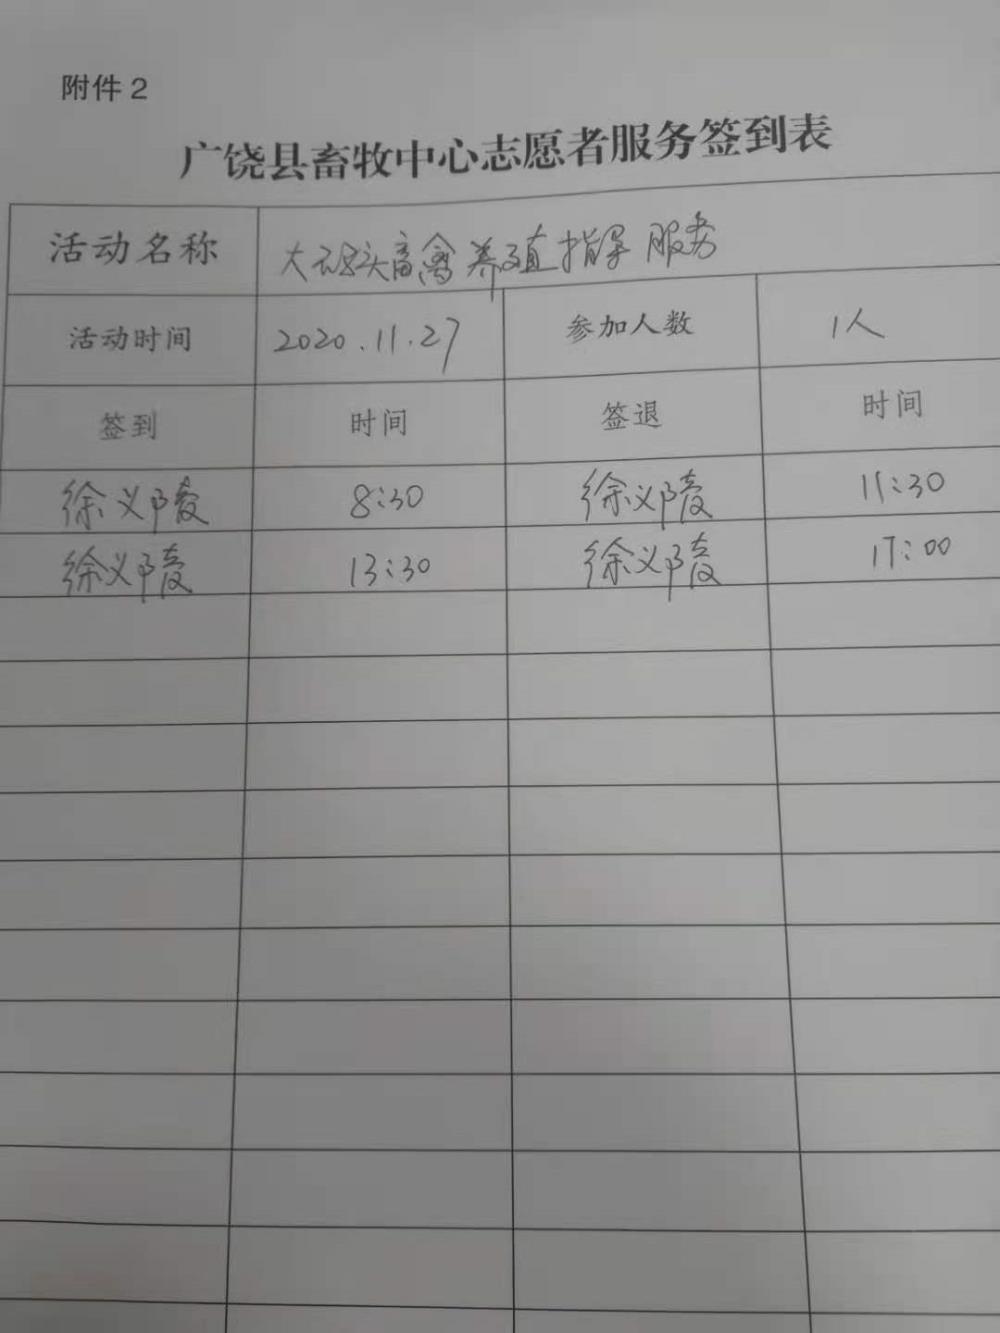 附件2
广饶县畜牧中心志愿者服务签到表
活动名称 大码头畜禽养殖指导服务
活动时间 2020.11.27 参加人数 1人
签到 时间 签退 时间
徐义陵 8:30 徐义陵 11:30
徐义陵 13:30 徐义陵 17:00